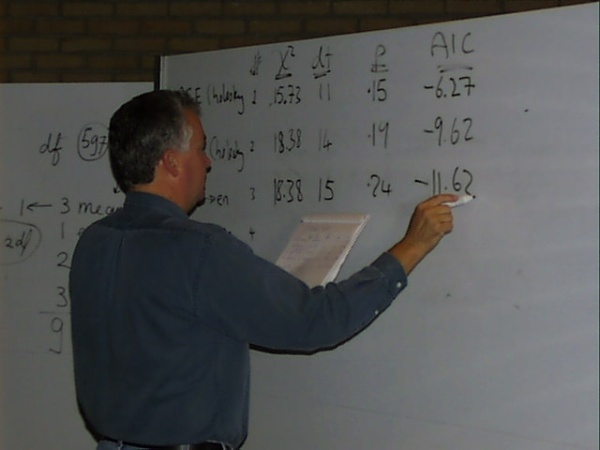 df χ² df P AIC
Cholesky 2 15.73 11 .15 -6.27
Cholesky 2 18.38 14 .19 -9.62
en 3 18.38 15 .24 -11.62
4
df 597
1 ← 3 mea
2df
1
2
3
9